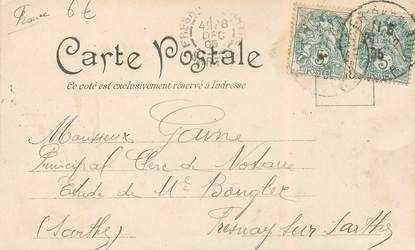 France 6€
Carte Postale
Ce côté est exclusivement réservé à l'adresse
Monsieur Game
Principal Clerc de Notaire
Etude de Me Bouglez
(Sarthe) Fresnay sur Sarthe